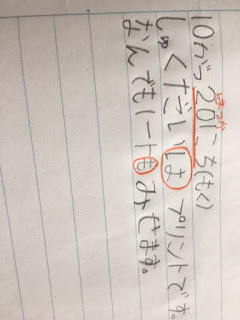 はつか
10がつ20にち(もく)
しゅくだいは プリントです。
なんでもノートも みせます。